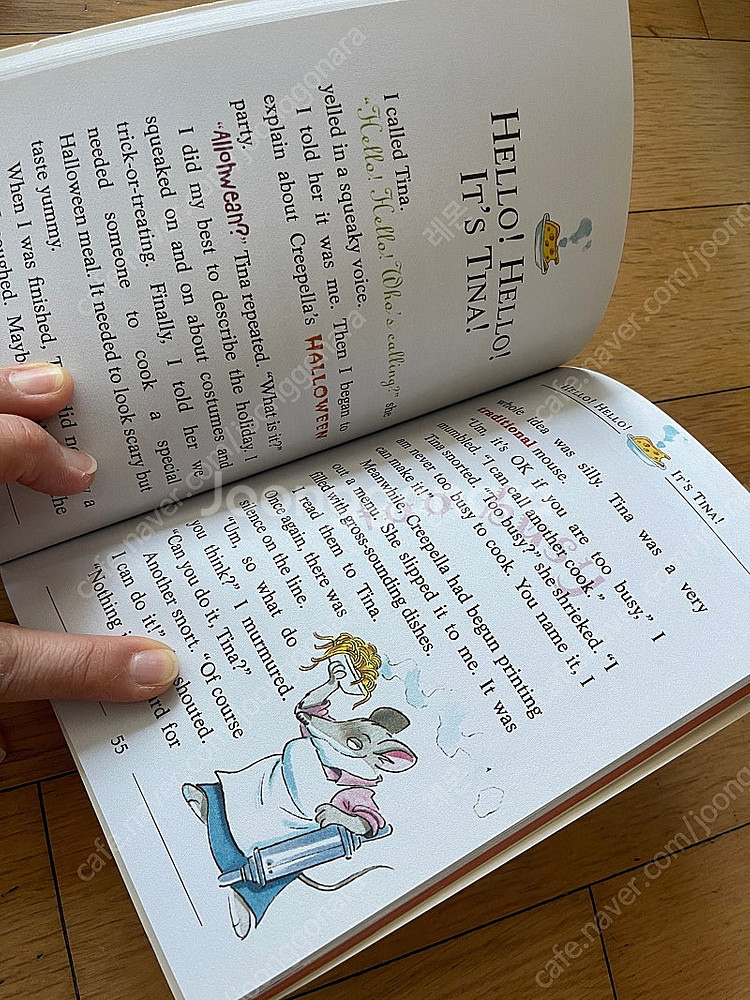 HELLO! HELLO!
IT'S TINA!
I called Tina.
"Hello! Hello! Who's calling?" she
yelled in a squeaky voice.
I told her it was me. Then I began to
explain about Creepella's HALLOWEEN
party.
"Allohwean?" Tina repeated. "What is it?"
I did my best to describe the holiday. I
squeaked on and on about costumes and
trick-or-treating. Finally, I told her we
needed someone to cook a special
Halloween meal. It needed to look scary but
taste yummy.
When I was finished,
HELLO! HELLO! IT'S TINA!
whole idea was silly. Tina was a very
traditional mouse.
"Um, it's OK if you are too busy," I
mumbled. "I can call another cook."
Tina snorted. "Too busy?" she shrieked. "I
am never too busy to cook. You name it, I
can make it!"
Meanwhile, Creepella had begun printing
out a menu. She slipped it to me. It was
filled with gross-sounding dishes.
I read them to Tina.
Once again, there was
silence on the line.
"Um, so what do
you think?" I murmured.
"Can you do it, Tina?"
Another snort. "Of course
I can do it!" shouted.
"Nothing for
55
too busy
Joonggonara
cafe.naver.com/joonggonara